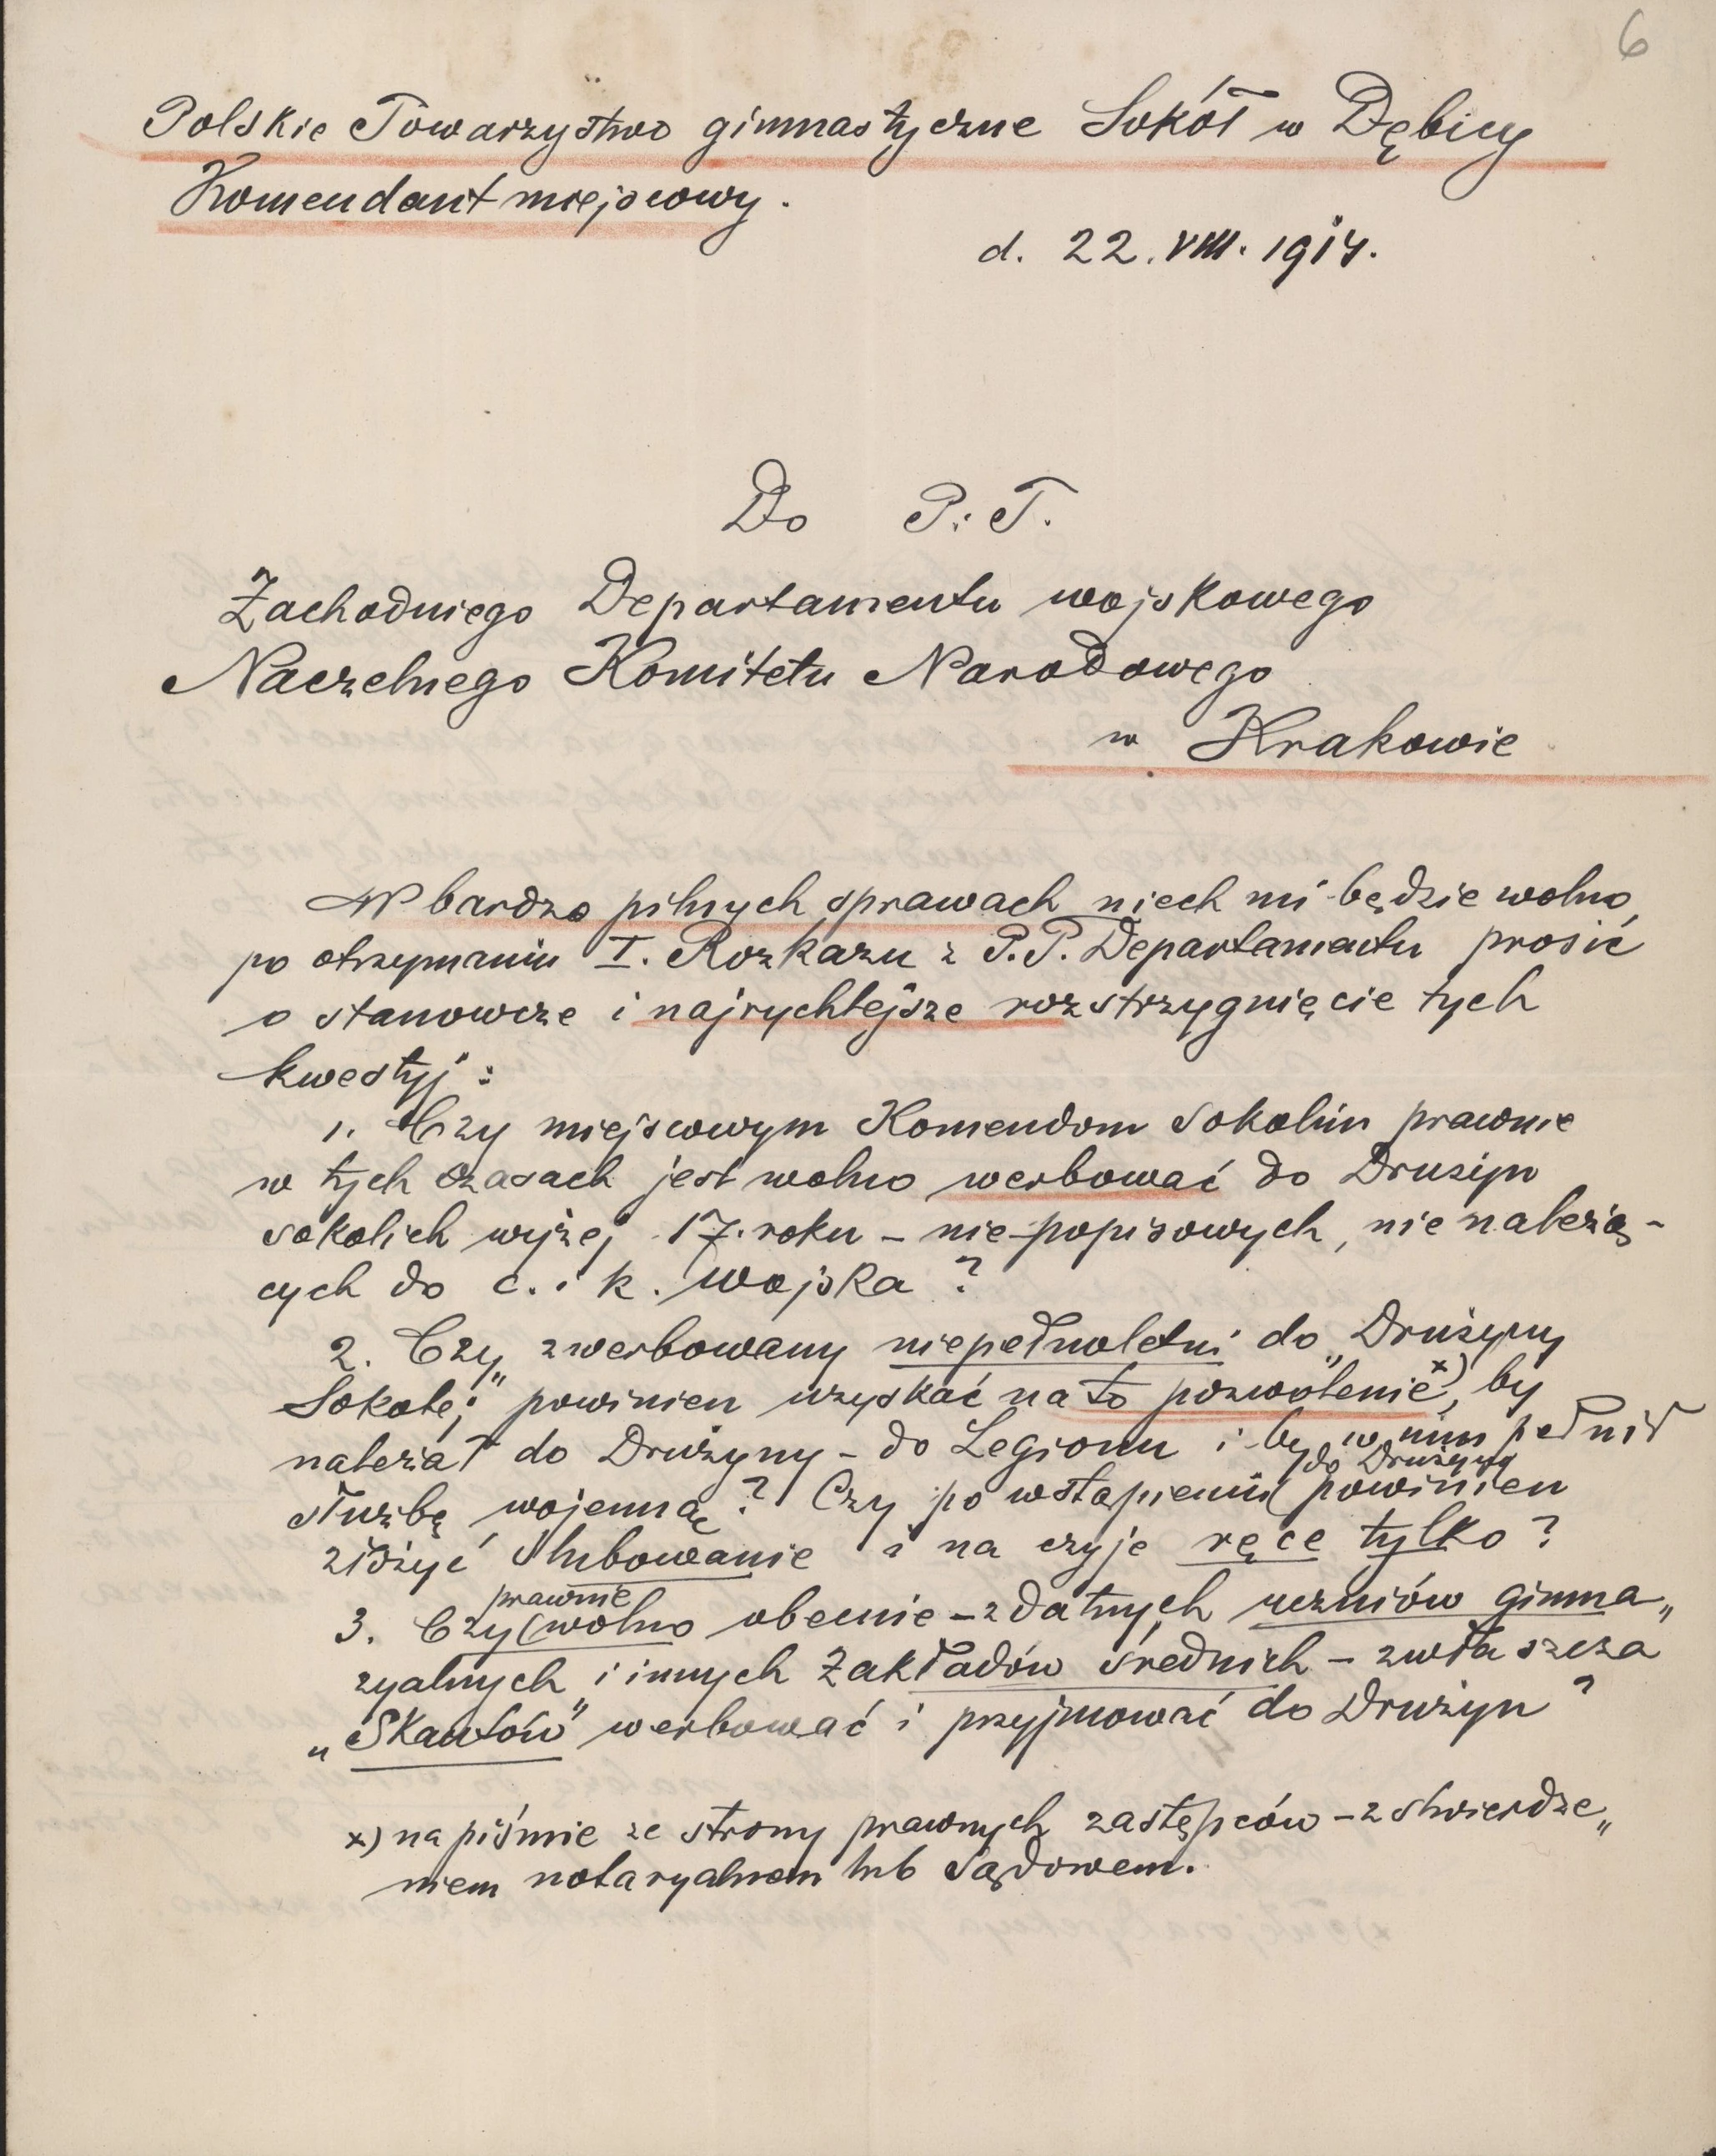 6
Polskie Towarzystwo gimnastyczne Sokół w Dębicy
Komendant miejscowy.
d. 22. VIII. 1914.
Do P. T.
Zachodniego Departamentu wojskowego
Naczelnego Komitetu Narodowego
w Krakowie
W bardzo pilnych sprawach niech mi będzie wolno,
po otrzymaniu I. Rozkazu z P.P. Departamentu prosić
o stanowcze i najrychlejsze rozstrzygnięcie tych
kwestyj:
1. Czy miejscowym Komendom Sokolim prawnie
w tych czasach jest wolno werbować do Drużyn
sokolich wyżej 17. roku – nie-popisowych, nie należą-
cych do c. i k. wojska?
2. Czy zwerbowany niepełnoletni do „Drużyny
Sokolej" powinien uzyskać na to pozwolenie x), by
należał do Drużyny – do Legionu i by w nim pełnił
służbę wojenną? Czy po wstąpieniu (do Drużyny powinien
złożyć ślubowanie i na czyje ręce tylko?
3. Czy (prawnie wolno obecnie – zdatnych uczniów gimna„
zyalnych i innych Zakładów średnich – zwłaszcza
„Skautów" werbować i przyjmować do Drużyn?
x) na piśmie ze strony prawnych zastępców – z stwierdze„
niem notaryalnem lub Sądowem.